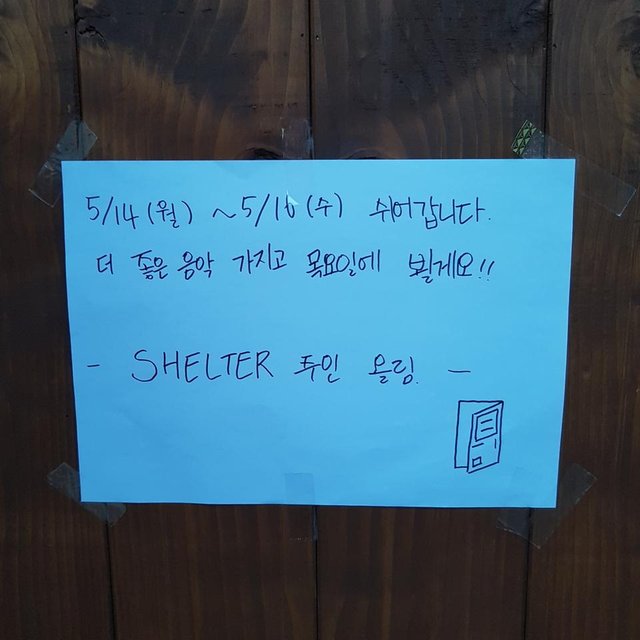 5/14(월) ~5/16(수) 쉬어갑니다.
더 좋은 음악 가지고 목요일에 뵐게요!!
- SHELTER 주인 올림. -